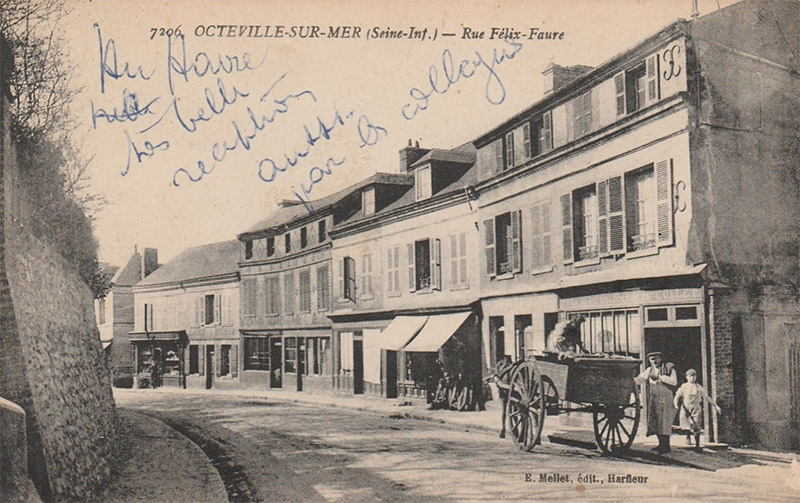 7206. OCTEVILLE-SUR-MER (Seine-Inf.) — Rue Félix-Faure
Au Havre
très belle
reception
aussi
par les collegues
E. Mellet, édit., Harfleur